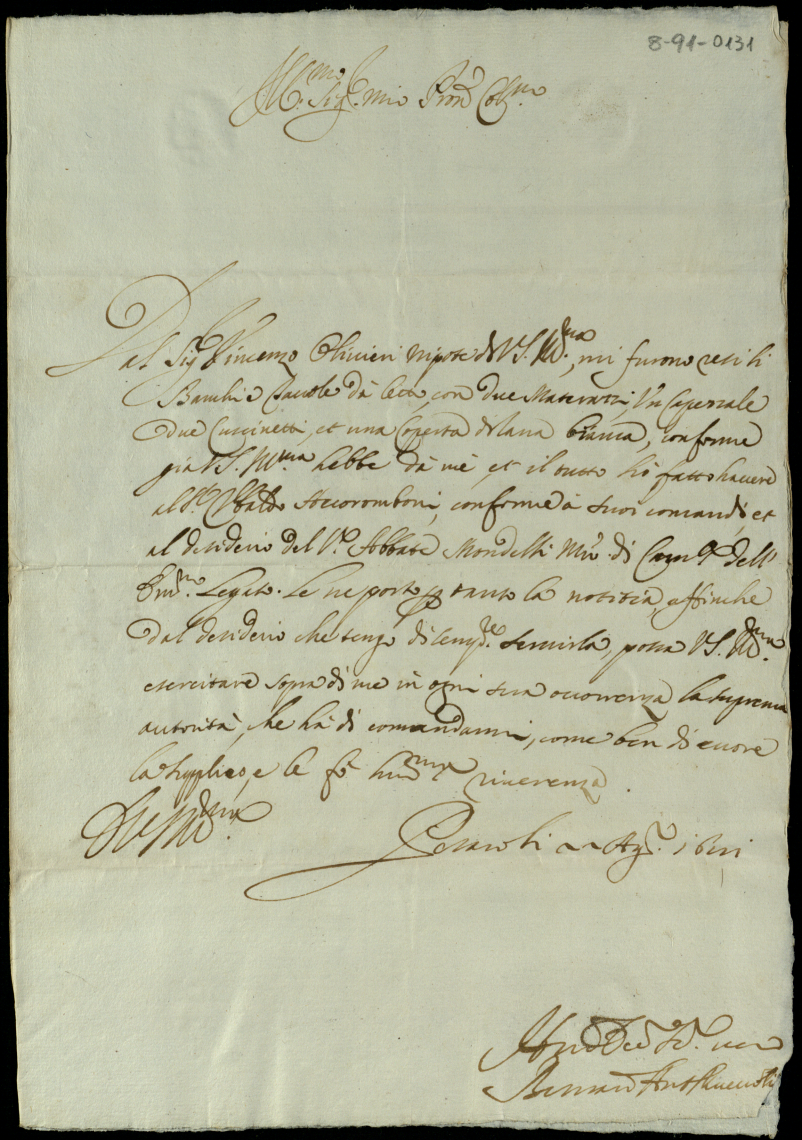 8-91-0131
Ill.mo Sig.r mio Pron Col.mo
Dal Sig.r Vincenzo Olivieri nipote di V.S. Ill.ma, mi furono resi li
Banchi e Tavole dà letto, con due Matarazzi, Un Capezzale
due Cuscinetti, et una Coperta di lana bianca, conforme
già V.S. Ill.ma hebbe dà mè, et il tutto hò fatto havere
al S.r Ubaldo Accoromboni, conforme à suoi comandi, et
al desiderio del S.r Abbate Mondelli Mro di Cam.a dell'
Em.mo Legato. Le ne porto p tanto la notitia, affinche
dal desiderio che tengo di semp.e servirla, possa V.S. Ill.ma
esercitare sopra di me in ogni sua occorrenza la suprema
autorità, che hà di comandarmi, come ben di cuore
la supplico, e le fò hum.ma riverenza.
Di V.S. Ill.ma
Pesaro li Ag.
Hum Dev